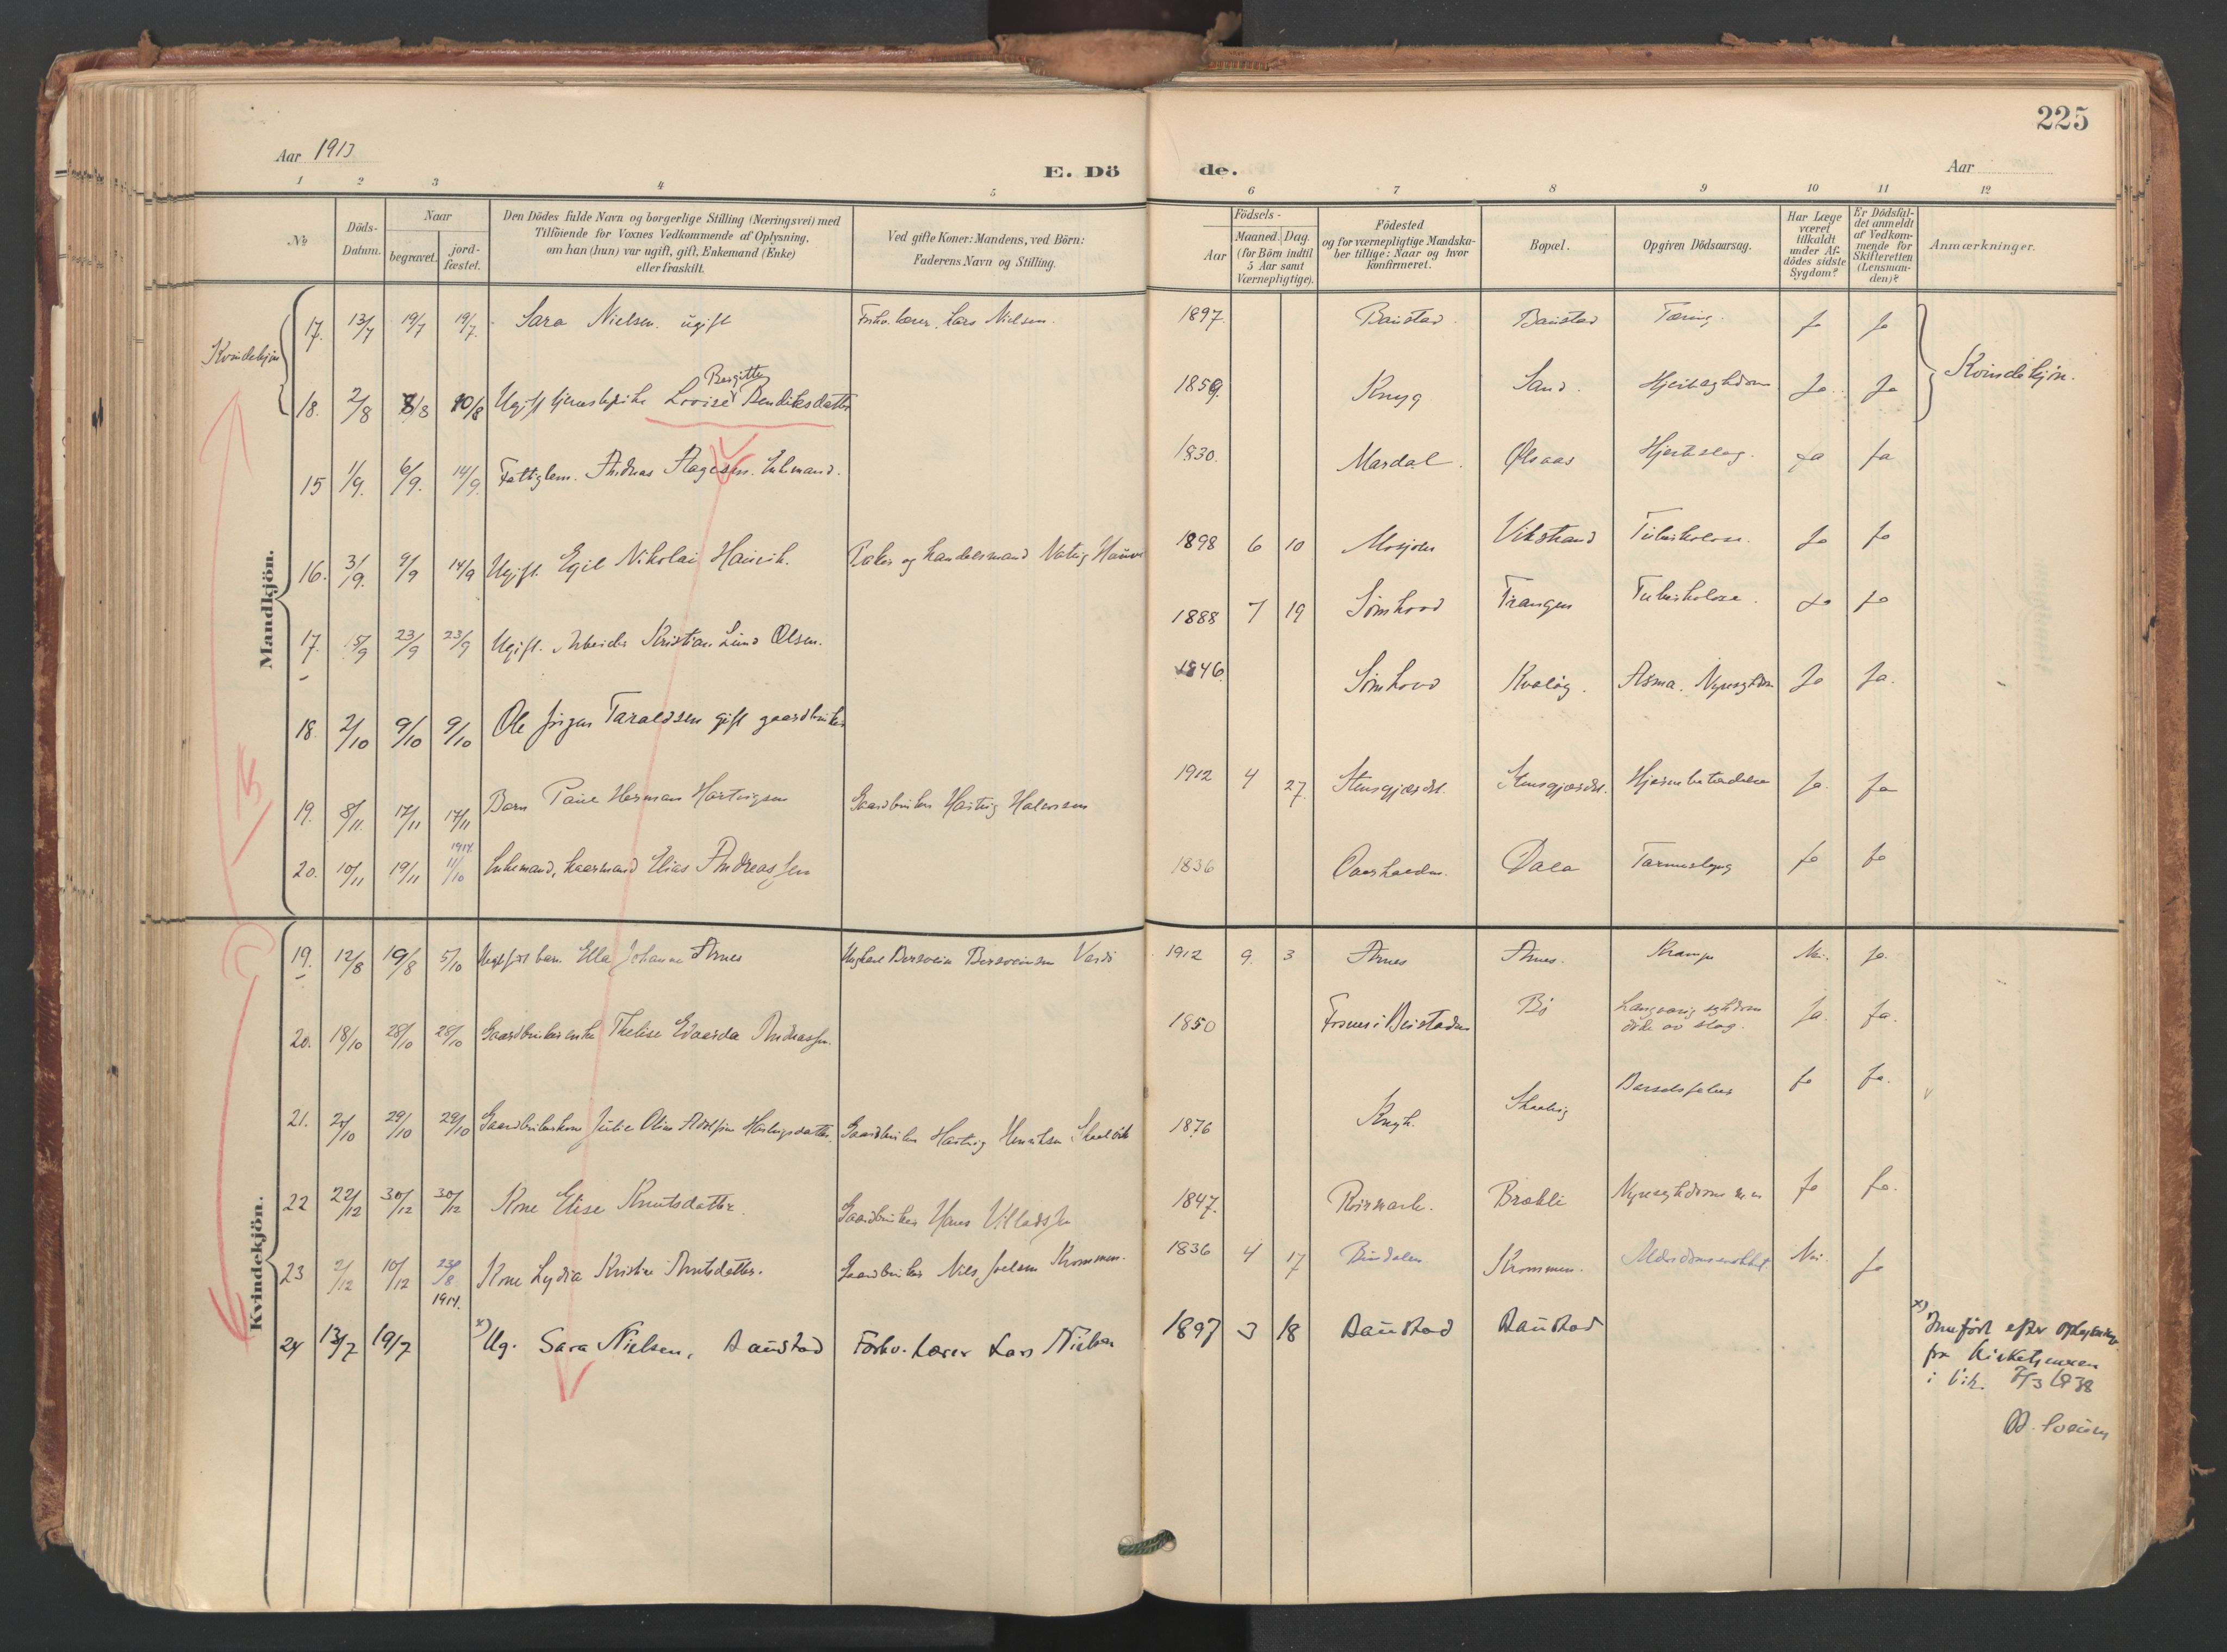 225
Aar 1913
E. Dö de.
Aar
1 2 3 4 5 6 7 8 9 10 11 12
No
Döds-Datum.
Naar
begravet.
jord-fæstet.
Den Dödes fulde Navn og borgerlige Stilling (Næringsvei) med
Tilföiende for Voxnes Vedkommende af Oplysning,
om han (hun) var ugift, gift, Enkemand (Enke)
eller fraskilt.
Ved gifte Koner: Mandens, ved Börn:
Faderens Navn og Stilling.
Födsels-
Aar
Maaned. Dag.
(for Börn indtil
5 Aar samt
Værnepligtige).
Födested
og for værnepligtige Mandska-
ber tillige: Naar og hvor
konfirmeret.
Bopæl.
Opgiven Dödsaarsag.
Har Læge
været
tilkaldt
under Af-
dödes sidste
Sygdom?
Er Dödsfal-
det anmeldt
af Vedkom-
mende for
Skifteretten
(Lensman-
den)?
Anmærkninger.
Kvindekjön
17. 13/7 19/7 19/7 Sara Nielsen. ugift Forhv. lærer, Lars Nielsen. 1897. Baustad. Baustad Tæring. Ja Ja
Kvindekjön.
Birgitte
18. 2/8 8/8 10/8 Ugift tjenestepike Lovise Bendiksdatter 1859. Sand. Hjertesygdom Ja Ja
Mandkjön.
15 1/9. 6/9. 14/9. Fattiglem. Andreas Aagesen. Enkemand. 1830. Mardal. Hjerteslag. Ja Ja
16. 3/9. 9/9 14/9 Ugift. Egil Nikolai 1898 6 10 Mosjøen Vikstrand Tuberkulose. Ja Ja
17. 15/9 23/9 23/9 Ugift. Arbeider Kristian Lind Olsen. 1888 7 19 Sömhovd Trangen Tuberkulose. Ja Ja
18. 2/10 9/10 9/10 Ole Jörgen Taraldsen gift gaardbruker 1846. Sömhovd Kvaløy. Asma. Nyresygdom Ja Ja.
19. 8/11. 17/11 17/11 Barn Paul Herman Hartvigsen Gaardbruker Hartvig Halvorsen 1912 4 27. Stensgjærdet. Stensgjærdet. Hjernebetændelse Ja. Ja
1914.
20. 10/11 19/11 11/10 Enkemand, kaarmand Elias Andreassen 1836 Dala Tarmslyng Ja Ja
Kvindekjön.
19. 12/8 19/8 5/10 Uegtef. barn Ella Johanne Aarnes Ungkarl 1912 9. 3 Aarnes Aarnes. Krampe Nei. Ja.
20. 18/10 28/10 28/10 Gaardbrukerenke Thelise Edvarda Andreassen. 1850 Fosnes i Beistaden Bö Langvarig sygdom
døde av slag. Ja. Ja.
21. 29/10 29/10 Gaardbrukerkone Julie Oline Adolfine Hartvigsdatter Gaardbruker Hartvig Henriksen 1876 Barselfeber Ja Ja.
22 22/12 30/12 30/12 Kone Elise Knutsdatter. Gaardbruker Hans Villadsen 1847. Brækli Ja Ja.
23 2/12 10/12 23/8 Kone Lydia Kristine Knutsdatter. Gaardbruker Nils Joelsen Krommen. 1836 4 17 Bindalen Krommen. Nei. Ja
1914.
24 13/7 19/7 x) Ug. Sara Nielsen, Baustad Forhv. Lærer Lars Nielsen 1897 3 18 Baustad Baustad
x) Innført efter oplysning
fra kirketjeneren
i Vik. 7/3 1938